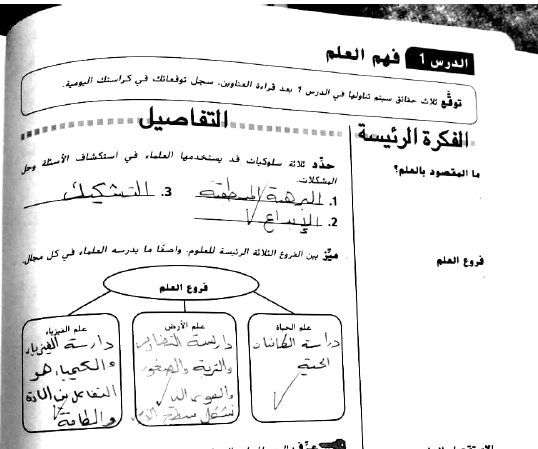 الدرس 1 فهم العلم
توقَّع ثلاث حقائق سيتم تناولها في الدرس 1 بعد قراءة العناوين. سجل توقعاتك في كراستك اليومية.
الفكرة الرئيسة
التفاصيل
ما المقصود بالعلم؟
حدِّد ثلاثة سلوكيات قد يستخدمها العلماء في استكشاف الأسئلة وحل
المشكلات.
1. المنطقية 3. التشكيك
2. الإبداع
فروع العلم
ميِّز بين الفروع الثلاثة الرئيسة للعلوم، واصفًا ما يدرسه العلماء في كل مجال.
فروع العلم
علم الحياة
دراسة الكائنات
الحية
علم الأرض
دارسة
والتربة والصخور
سطح
علم الفيزياء
دارسة الفيزياء
والكيمياء هو
التفاعل بين المادة
والطاقة